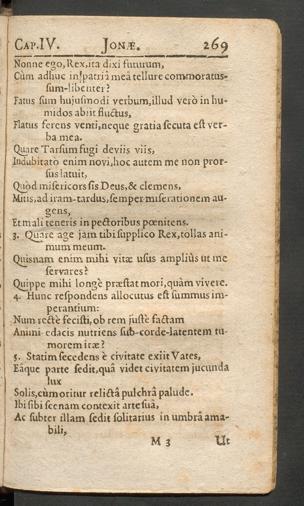 CAP.IV. JONÆ. 269
Nonne ego, Rex, ita dixi futurum,
Cùm adhuc in patriâ meâ tellure commoratus-
sum-libenter?
Fatus sum hujusmodi verbum, illud verò in hu-
midos abiit fluctus,
Flatus ferens venti, neque gratia secuta est ver-
ba mea.
Quare Tarsum fugi deviis viis,
Indubitato enim novi, hoc autem me non pror-
sus latuit,
Quòd misericors sis Deus, & clemens,
Mitis, ad iram-tardus, semper miserationem au-
gens,
Et mali teneris in pectoribus pœnitens.
3. Quare age jam tibi supplico Rex, tollas ani-
mum meum.
Quisnam enim mihi vitæ usus ampliùs ut me
servares?
Quippe mihi longè præstat mori, quàm vivere.
4. Hunc respondens allocutus est summus im-
perantium:
Num rectè fecisti, ob rem justè factam
Animi edacis nutriens sub-corde-latentem tu-
morem iræ?
5. Statim secedens è civitate exiit Vates,
Eâque parte sedit, quâ videt civitatem jucunda
lux
Solis, cùm oritur relictâ pulchrâ palude.
Ibi sibi scenam contexit arte suâ,
Ac subter illam sedit solitarius in umbrâ ama-
bili,
M 3 Ut